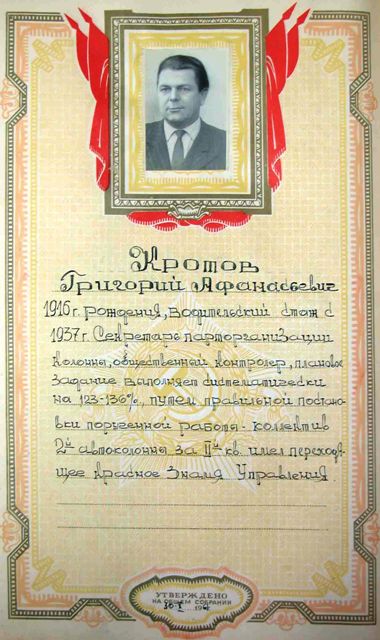 Кротов
Григорий Афанасьевич
1916 г. рождения, водительский стаж с
1937 г. Секретарь парторганизации
колонны, общественный контролер, плановое
задание выполняет систематически
на 123-136%, путем правильной постано-
вки порученной работы - коллектив
2й автоколонны за IIй кв. имел переходя-
щее Красное Знамя Управления.
УТВЕРЖДЕНО
НА ОБЩЕМ СОБРАНИИ